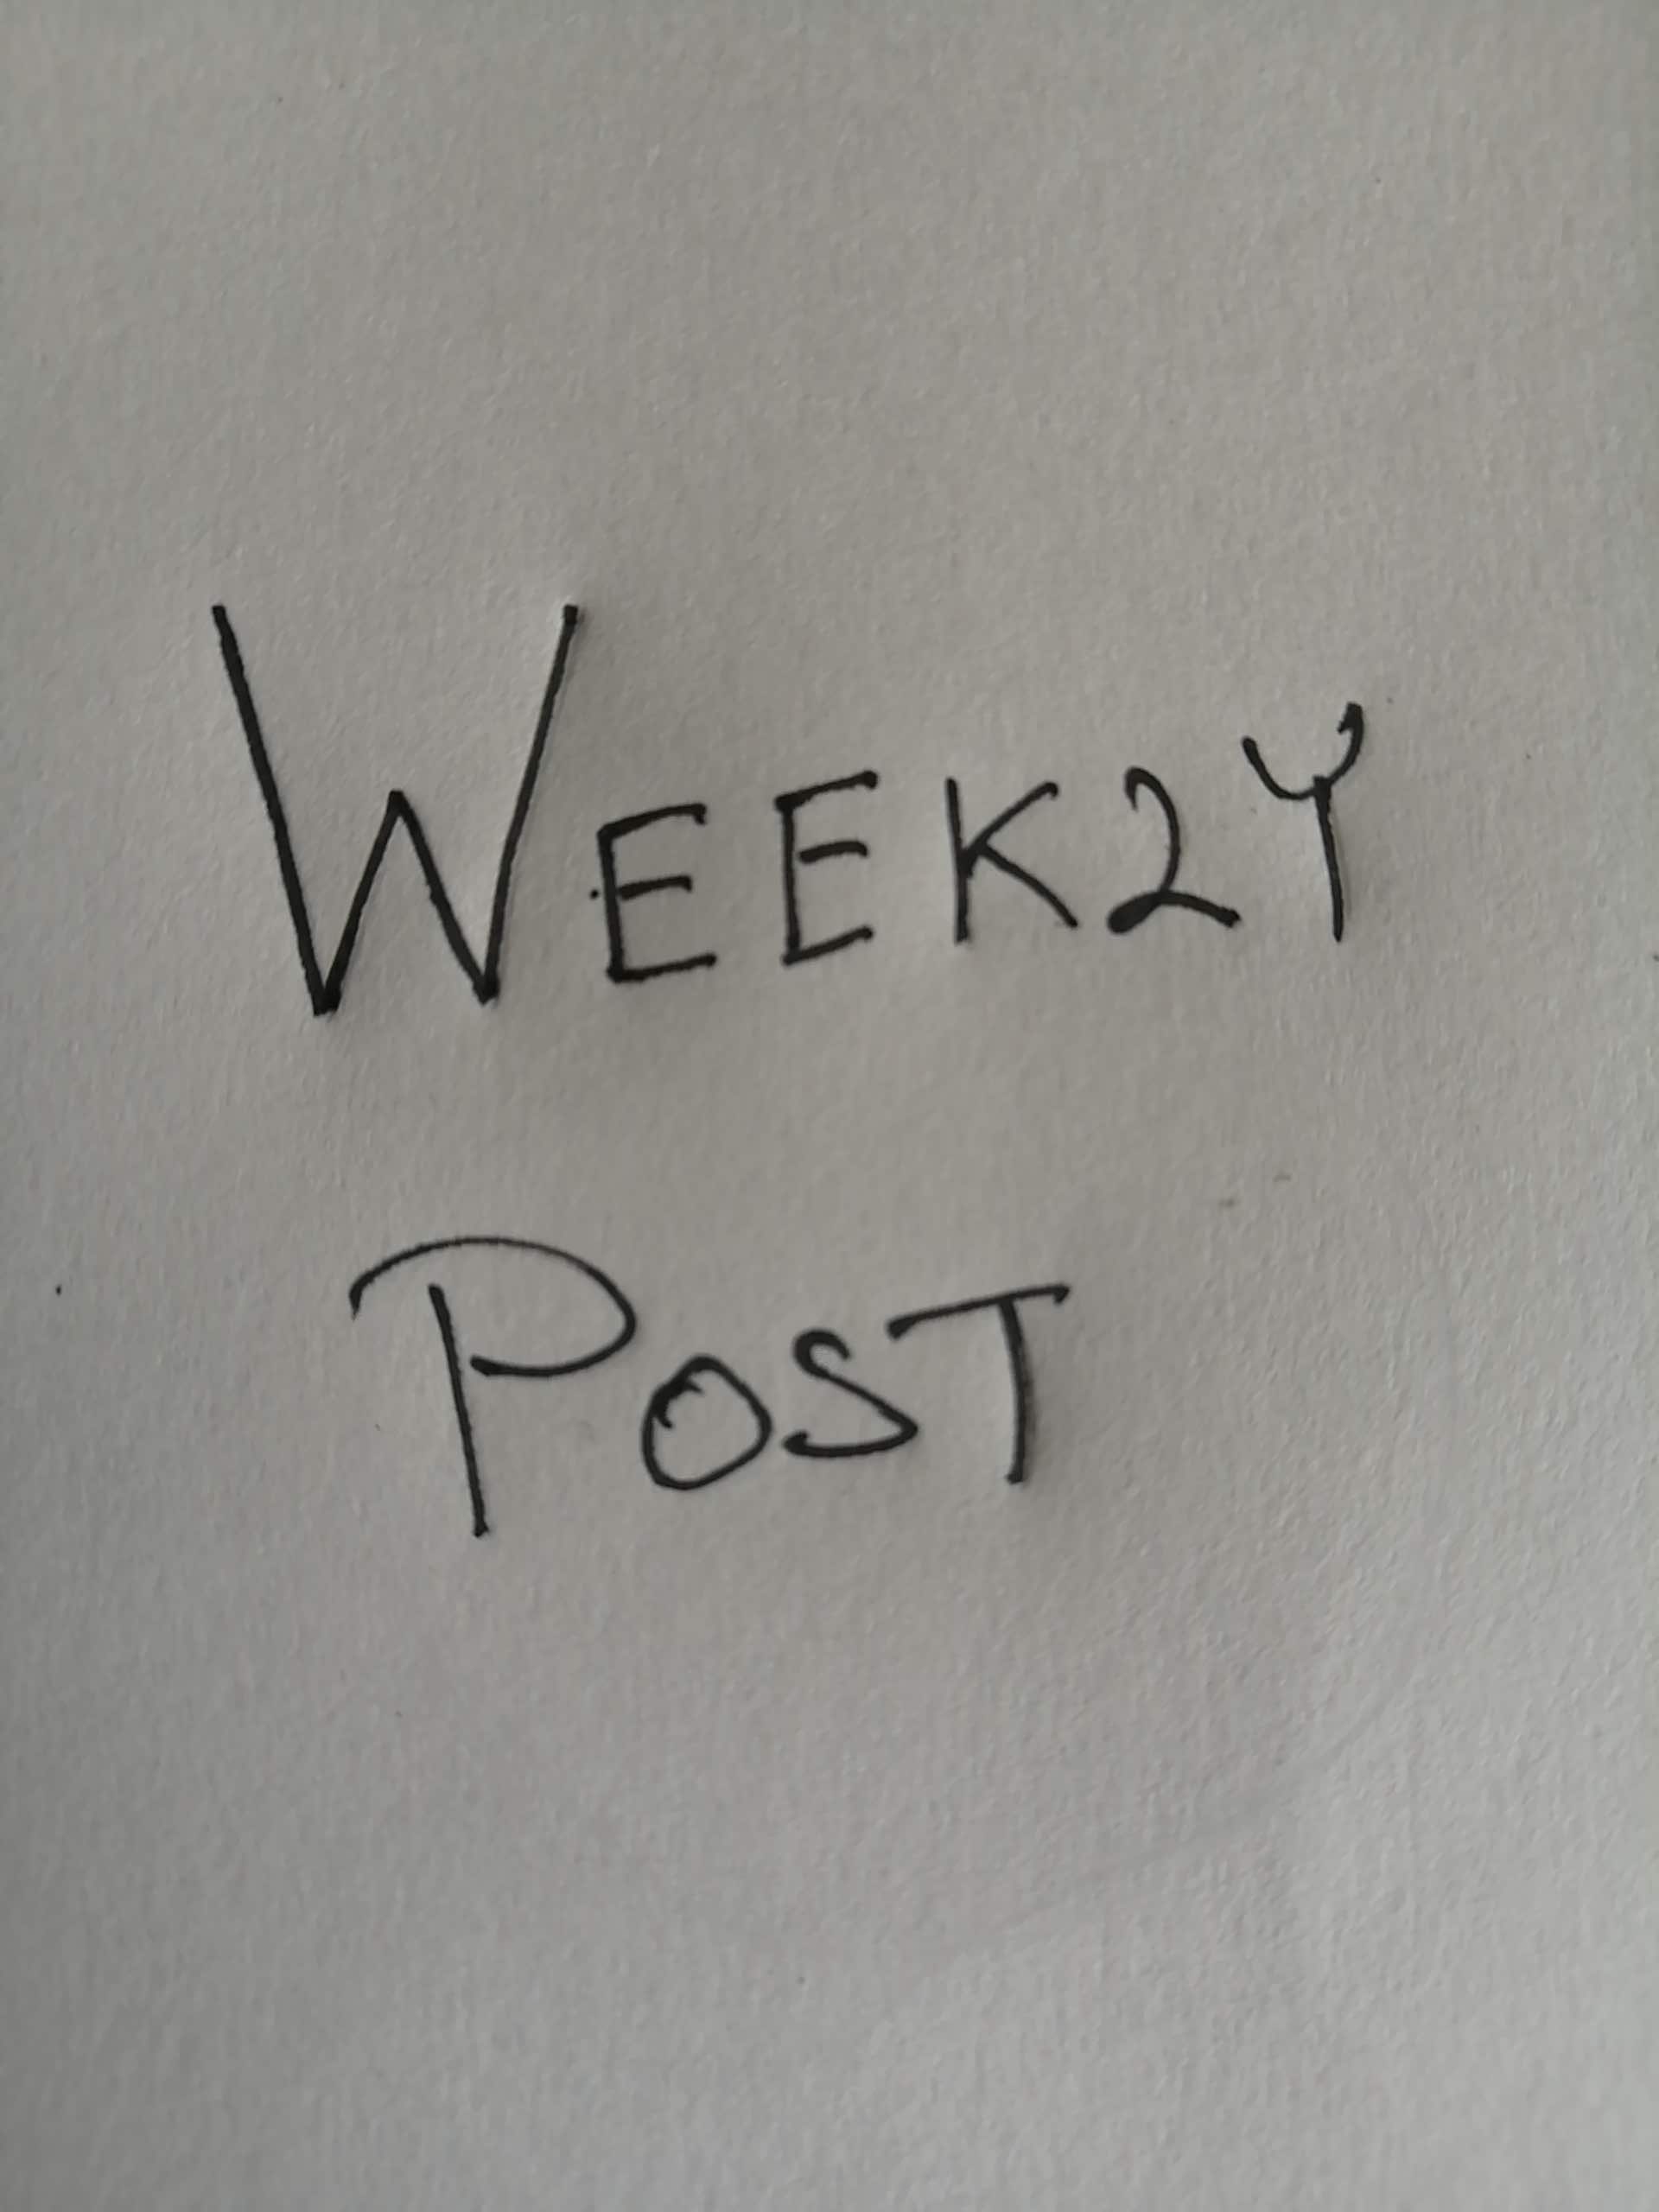 WEEK2Y
POST